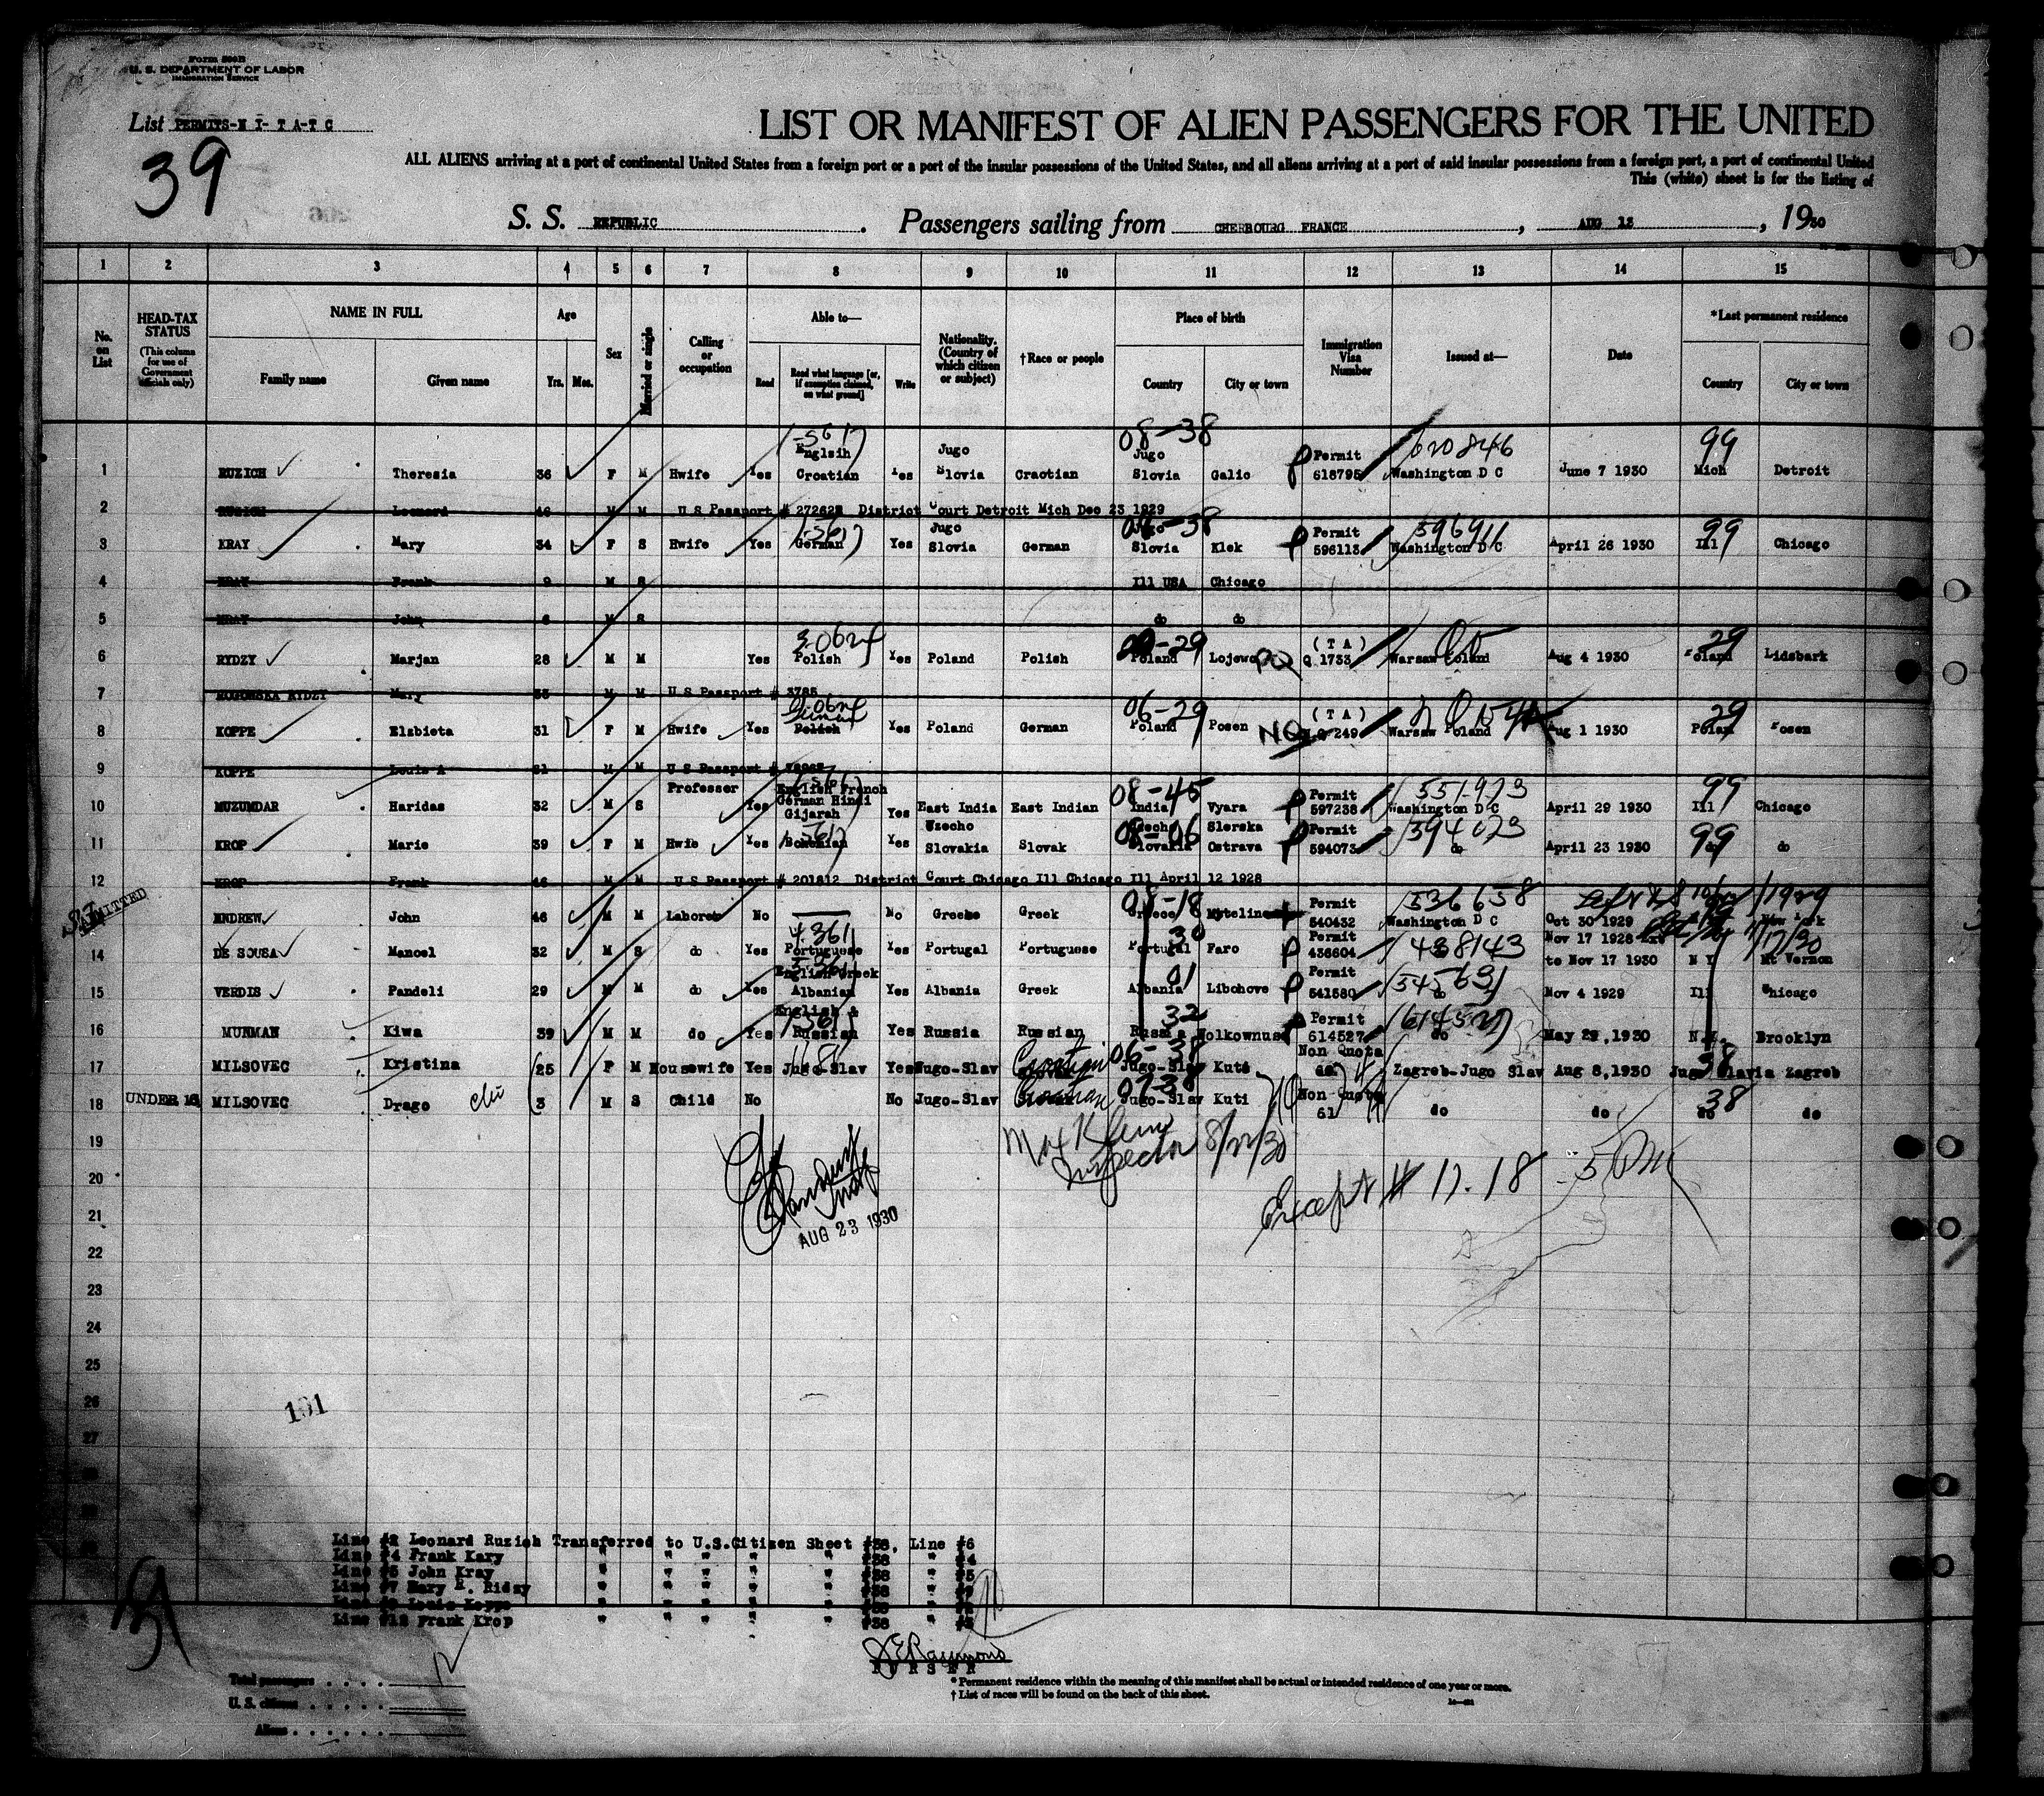 Form 500B
U. S. DEPARTMENT OF LABOR
IMMIGRATION SERVICE
List PERMITS-N I- T A-T C
39
LIST OR MANIFEST OF ALIEN PASSENGERS FOR THE UNITED
ALL ALIENS arriving at a port of continental United States from a foreign port or a port of the insular possessions of the United States, and all aliens arriving at a port of said insular possessions from a foreign port, a port of continental United
This (white) sheet is for the listing of
S. S. REPUBLIC. Passengers sailing from CHERBOURG FRANCE, AUG 13, 1930
1 2 3 4 5 6 7 8 9 10 11 12 13 14 15
No. on List
HEAD-TAX STATUS
(This column for use of Government officials only)
NAME IN FULL
Family name Given name
Age
Yrs. Mos.
Sex
Married or single
Calling or occupation
Able to—
Read Read what language [or, if exemption claimed, on what ground] Write
Nationality. (Country of which citizen or subject)
†Race or people
Place of birth
Country City or town
Immigration Visa Number
Issued at—
Date
*Last permanent residence
Country City or town
08-38 620846 99
1 RUZICH Theresia 36 F M Hwife Yes Englsih Croatian Yes Jugo Slovia Craotian Jugo Slovia Galic Permit 618795 Washington D C June 7 1930 Mich Detroit
2 RUZICH Leonard 46 M M U S Passport # 272628 District Court Detroit Mich Dec 23 1929
3 KRAY Mary 34 F S Hwife Yes German Yes Jugo Slovia German Jugo Slovia Klek Permit 596113 Washington D C April 26 1930 Ill Chicago
596911 99
4 KRAY Frank 9 M S Ill USA Chicago
5 KRAY John 6 M S do do
6 RYDZY Marjan 28 M M Yes Polish Yes Poland Polish Poland Lojewo (T A) Q 1733 Warsaw Poland Aug 4 1930 Poland Lidsbark
29
7 ROGOWSKA RYDZY Mary 35 M M U S Passport # 3785
8 KOPPE Elzbieta 31 F M Hwife Yes Polish Yes Poland German Poland Posen (T A) NQ 249 Warsaw Poland Aug 1 1930 Poland Posen
06-29 29
9 KOPPE Louis A 31 M M U S Passport #
10 MUZUMDAR Haridas 32 M S Professor Yes English French German Hindi Gijarah Yes East India East Indian India Vyara Permit 597238 Washington D C April 29 1930 Ill Chicago
08-45 551923 99
11 KROP Marie 39 F M Hwife Yes Bohemian Yes Czecho Slovakia Slovak Czecho Slovakia Slerska Ostrava Permit 594073 do April 23 1930 do do
08-06 594073 99
12 KROP Frank 46 M M U S Passport # 201812 District Court Chicago Ill Chicago Ill April 12 1928
ADMITTED
13 ENDREW John 46 M M Laborer No No Greece Greek Greece Myteline Permit 540432 Washington D C Oct 30 1929 New York
08-18 536658
14 DE SOUSA Manoel 32 M S do Yes Portuguese Yes Portugal Portuguese Portugal Faro Permit 436604 Nov 17 1928 to Nov 17 1930 N Y Mt Vernon
30 438143
15 VERDIS Pandeli 29 M M do Yes English Greek Albanian Yes Albania Greek Albania Libohove Permit 541580 do Nov 4 1929 Ill Chicago
01 545631
16 MUNMAN Kiwa 39 M M do Yes English & Russian Yes Russia Russian Russia Wolkownusk Permit 614527 do May 29, 1930 N.Y. Brooklyn
32 614527
17 MILSOVEC Kristina 25 F M Housewife Yes Jugo-Slav Yes Jugo-Slav Croatian Jugo-Slav Kuti Non Quota Zagreb-Jugo Slav Aug 8,1930 Jugo Slavia Zagreb
06-38 38
18 UNDER 16 MILSOVEC Drago 3 M S Child No No Jugo-Slav Croatian Jugo-Slav Kuti Non Quota 61 do do do do
07-38 38
19
Max Klein
Inspector 8/22/30
20
Except # 17. 18
21
AUG 23 1930
22
23
24
25
26
191
27
Line #2 Leonard Ruzich Transferred to U.S.Citizen Sheet #38, Line #6
Line #4 Frank Kary " " " " " #38 " #4
Line #5 John Kray " " " " " #38 " #5
Line #7 Mary R. Ridzy " " " " " #38 "
Line #9 Louis Koppe " " " " " #38 "
Line #12 Frank Krop " " " " " #38 "
PURSER
Total passengers 12
U. S. citizens
Aliens
* Permanent residence within the meaning of this manifest shall be actual or intended residence of one year or more.
† List of races will be found on the back of this sheet.